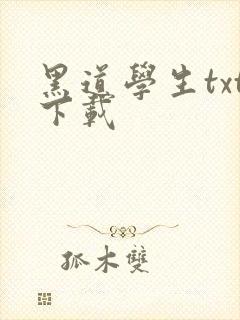 黑道學生txt
下載
孤木雙